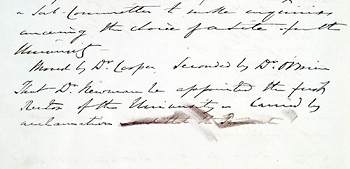 a Sub Committee to make enquiries
concerning the choice of a site for the
University
Moved by Dr. Cooper Seconded by Dr. O'Brien
That Dr. Newman be appointed the first
Rector of the University. Carried by
acclamation